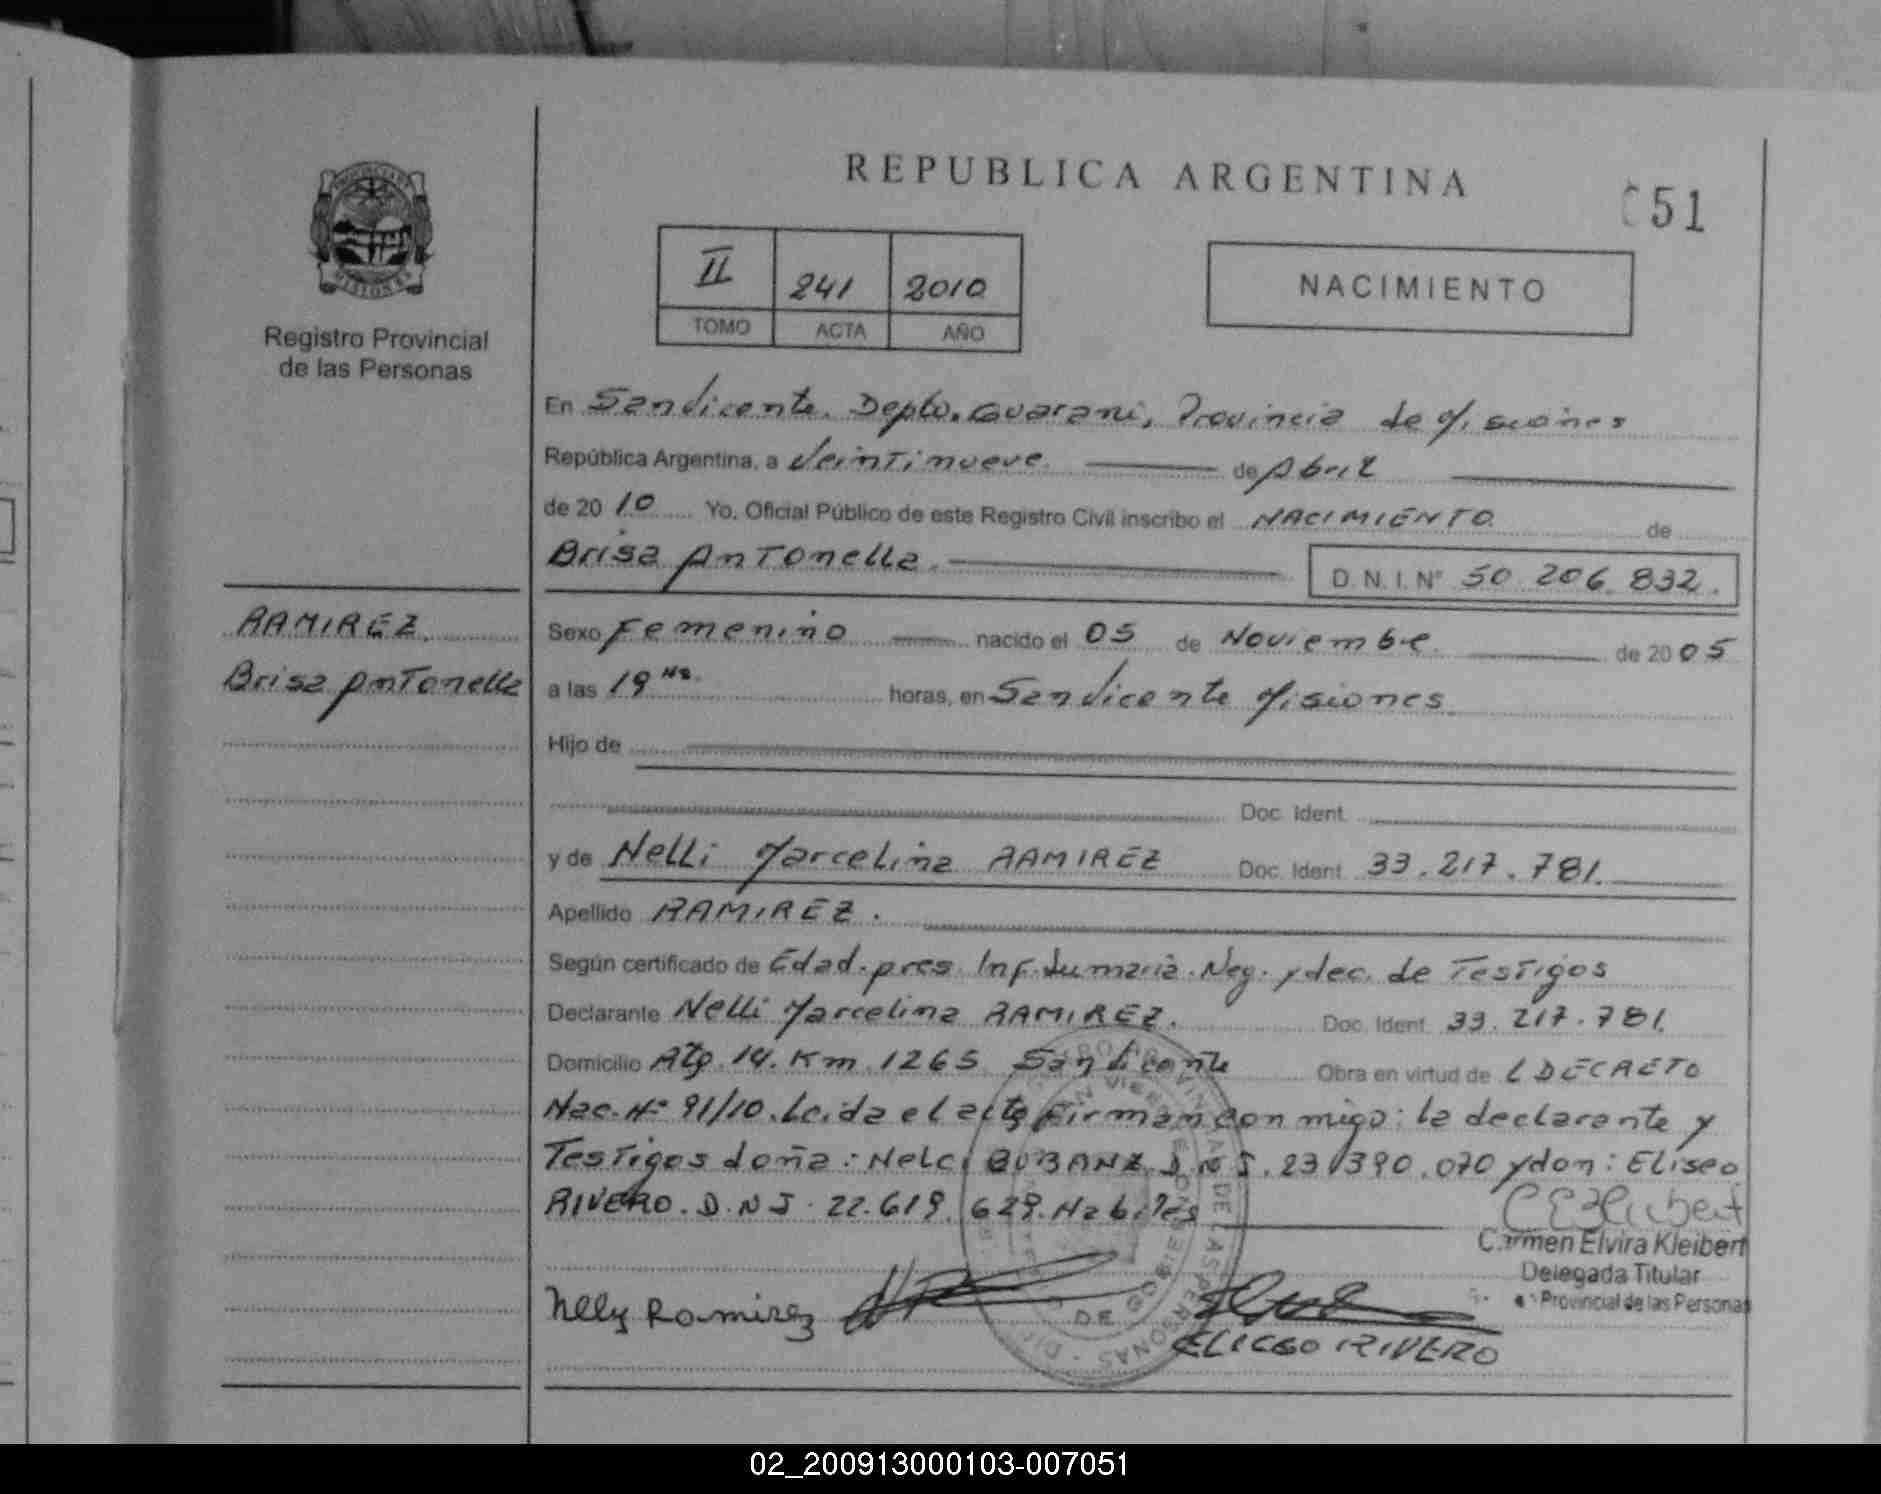 REPUBLICA ARGENTINA
51
II 241 2010
TOMO ACTA AÑO
NACIMIENTO
PROVINCIA DE MISIONES
Registro Provincial
de las Personas
En San Vicente. Depto. Guarani, Provincia de Misiones
República Argentina, a Veintinueve. de Abril
de 2010 Yo, Oficial Público de este Registro Civil inscribo el NACIMIENTO de
Brisa Antonella. D. N. I. Nº 50.206.832.
RAMIREZ.
Brisa Antonella
Sexo Femenino nacido el 05 de Noviembre. de 2005
a las 19 Hs. horas, en San Vicente Misiones.
Hijo de
Doc. Ident.
y de Nelli Marcelina RAMIREZ Doc. Ident. 33.217.781.
Apellido RAMIREZ.
Según certificado de Edad. pres. Inf. Sumaria. Neg. y dec. de Testigos
Declarante Nelli Marcelina RAMIREZ. Doc. Ident. 33.217.781.
Domicilio RN. 14. Km. 1265 San Vicente Obra en virtud de L DECRETO
Nac. Nº 91/10. Leida el acta firman con migo: la declarante y
Testigos doña: Nelci D.N.I. 23.390.070 y don: Eliseo
RIVERO. D.N.I. 22.619.629. Habiles
Carmen Elvira Kleibert
Delegada Titular
Provincial de las Personas
Nelly Ramirez
ELICEO RIVERO
02_200913000103-007051